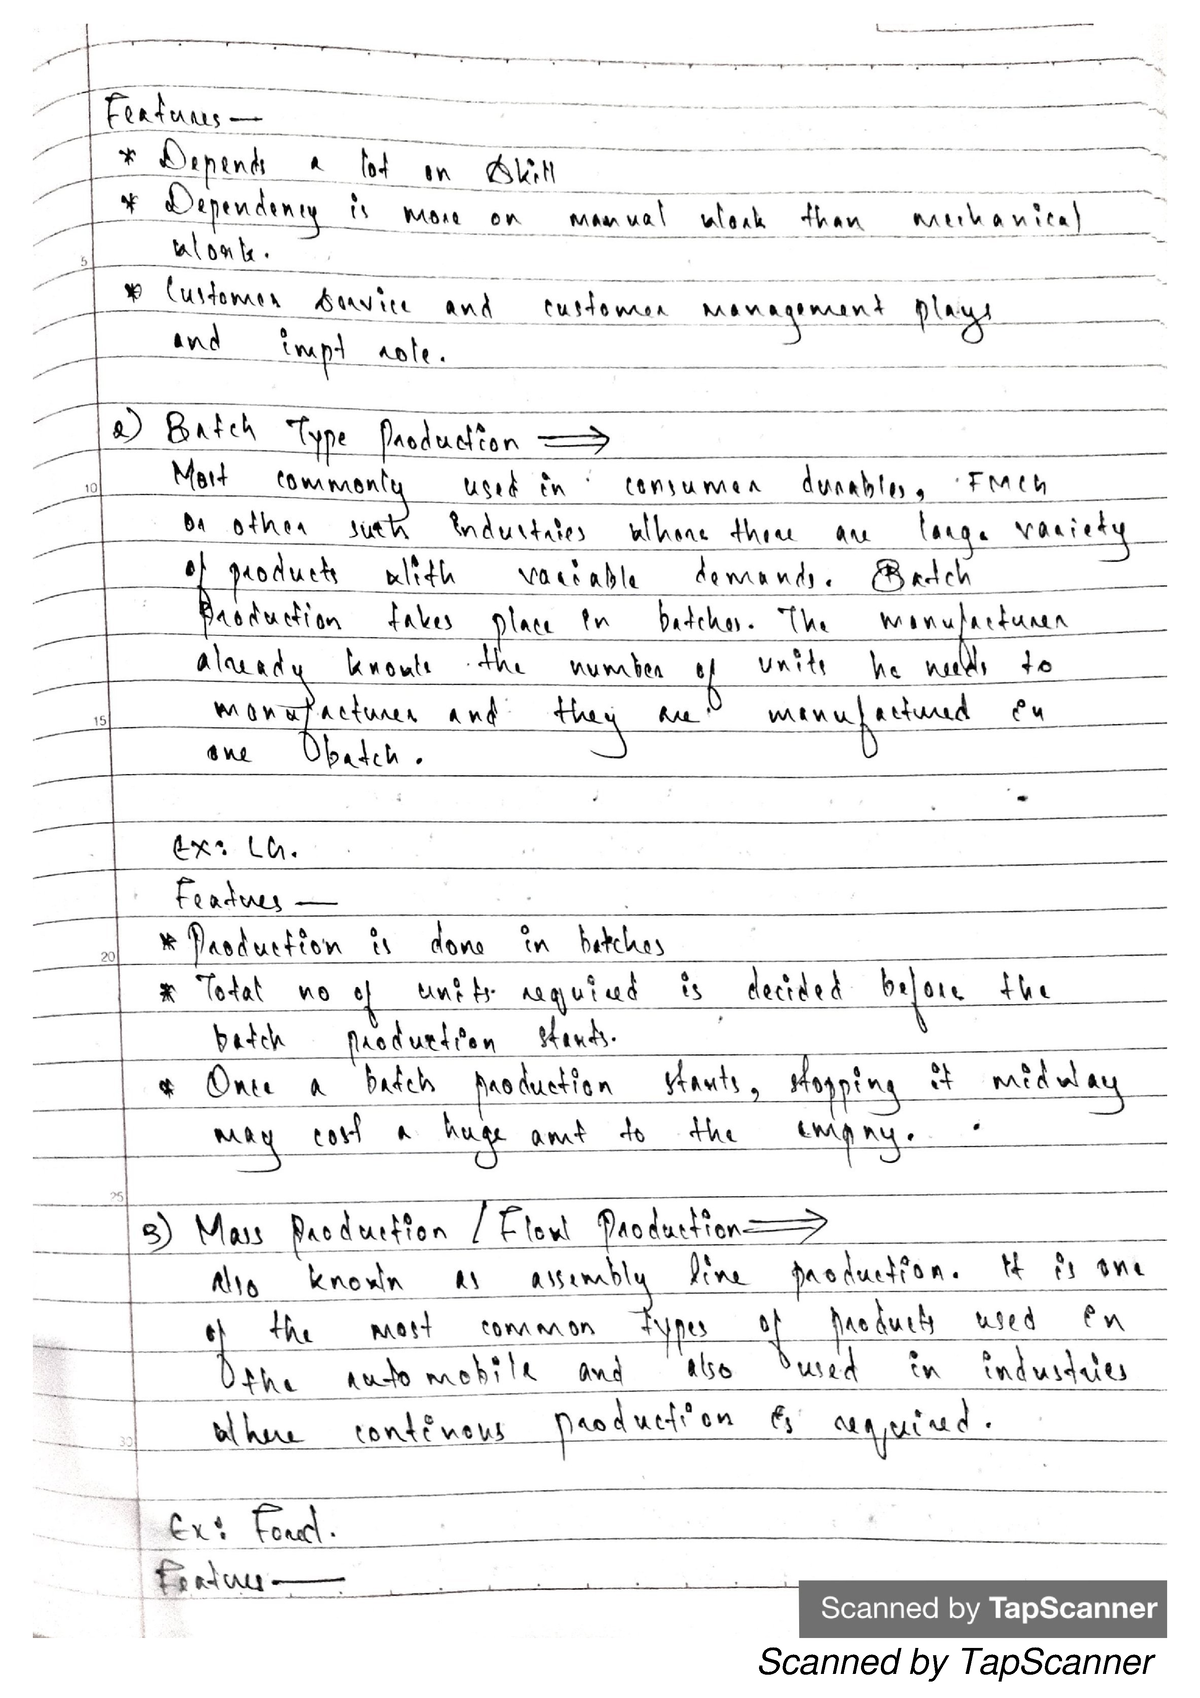 Features —
* Depends a lot on skill
* Dependency is more on manual work than mechanical
work.
* Customer service and customer management plays
and impt role.
2) Batch Type Production ⟹
Most commonly used in consumer durables, FMCG
or other such industries where there are large variety
of products with variable demands. Batch
Production takes place in batches. The manufacturer
already knows the number of units he needs to
manufacturer and they are manufactured in
one batch.
Ex: LG.
Features —
* Production is done in batches
* Total no of units required is decided before the
batch production starts.
* Once a batch production starts, stopping it midway
may cost a huge amt to the cmpny.
3) Mass Production / Flow Production ⟹
also known as assembly line production. It is one
of the most common types of products used in
the automobile and also used in industries
where continous production is required.
Ex: Ford.
Features —
5
10
15
20
25
30
Scanned by TapScanner
Scanned by TapScanner